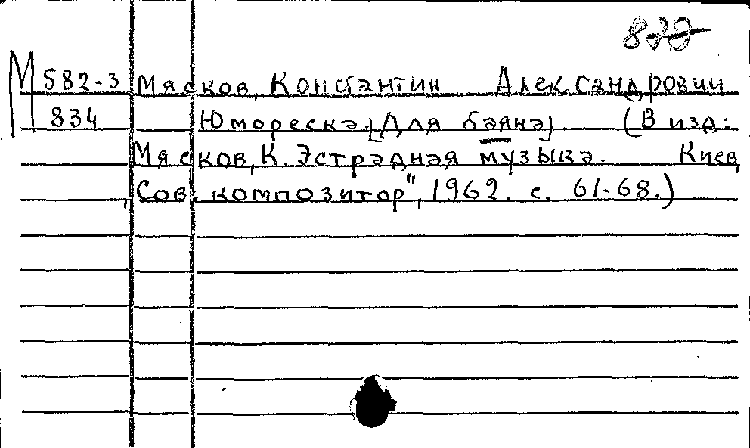 М 582-3 Мясков, Константин Александрович
834 Юмореска [Для баяна]. (В изд:
Мясков, К. Эстрадная музыка. Киев,
"Сов. композитор", 1962. с. 61-68.)